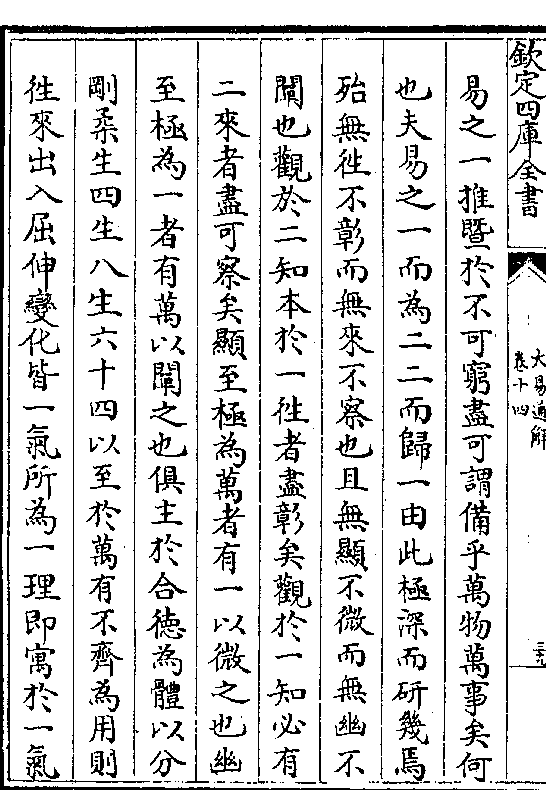 欽定四庫全書
大易通解
卷十四
三九
易之一推暨於不可窮盡可謂備乎萬物萬事矣何
也夫易之一而為二二而歸一由此極深而研幾焉
殆無徃不彰而無來不察也且無顯不微而無幽不
闡也觀於二知本於一徃者盡彰矣觀於一知必有
二來者盡可察矣顯至極為萬者有一以微之也幽
至極為一者有萬以闡之也俱主於合德為體以分
剛柔生四生八生六十四以至於萬有不齊為用則
徃來出入屈伸變化皆一氣所為一理即寓於一氣